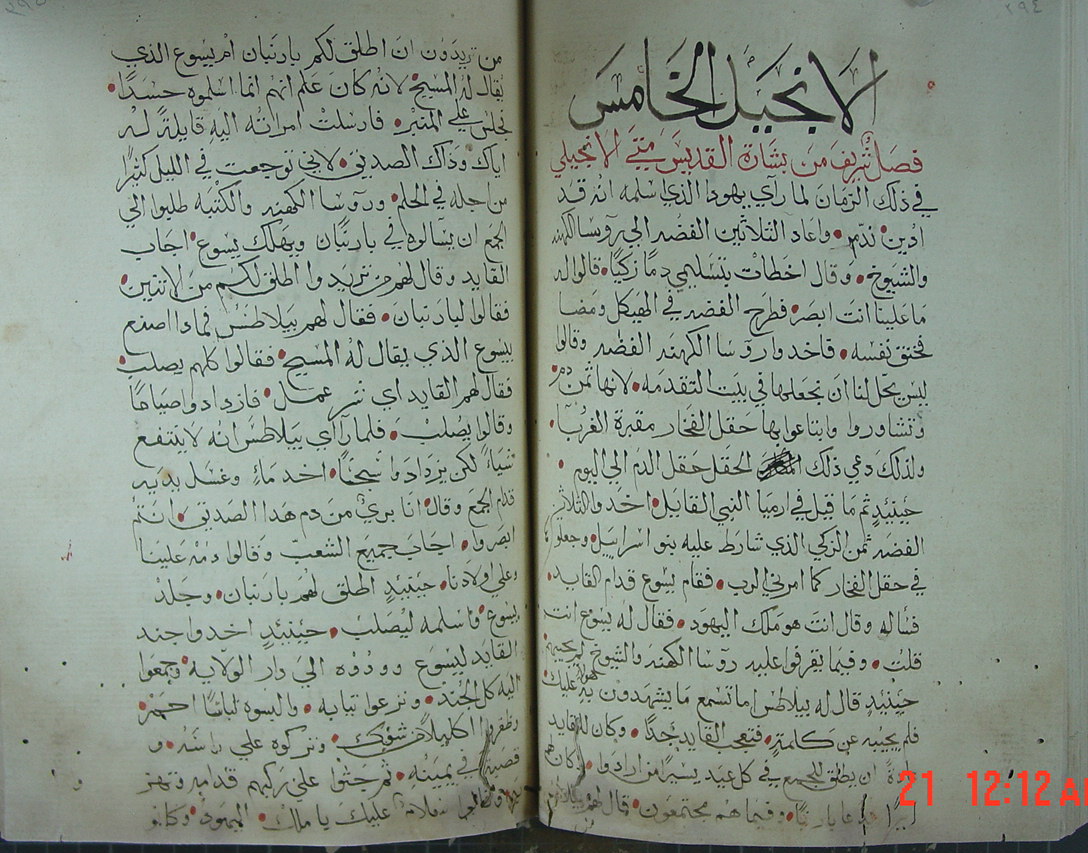 ٢٩٤
الانجيل الخامس
فصل شريف من بشارة القديس متي الانجيلي
في ذلك الزمان لما رآي يهودا الذي اسلمه انه قد
ادين ندم واعاد الثلاثين الفضه الي روسا الكهنه
والشيوخ وقال اخطات بتسليمي دما زكيا قالوا له
ما علينا انت ابصر فطرح الفضه في الهيكل ومضا
فخنق نفسه فاخدوا روسا الكهنه الفضه وقالوا
ليس يحل لنا ان نجعلها في بيت التقدمه لانها ثمن دم
وتشاوروا وابتاعوا بها حقل الفخار مقبرة الغربآ
ولذلك دعي ذلك الحقل حقل الدم الي اليوم
حينيذ تم ما قيل في ارميا النبي القايل اخدوا الثلاثين
الفضه ثمن الزكي الذي شارط عليه بنو اسراييل وجعلوها
في حقل الفخار كما امرني الرب فقام يسوع قدام القايد
فساله وقال انت هو ملك اليهود فقال له يسوع انت
قلت وفيما يقرفوا عليه روسا الكهنه والشيوخ لم يجبهم
حينيذ قال له بيلاطس اما تسمع ما يشهدون به عليك
فلم يجيبه عن كلمة فتعجب القايد جدا وكان للقايد
عادة ان يطلق للجميع في كل عيد يسيرا من ارادوا وكان
يدعا باربان وفيما هم مجتمعون قال لهم بيلاطس
من تريدون ان اطلق لكم باربان ام يسوع الذي
يقال له المسيح لانه كان علم انهم انما اسلموه حسدا
فجلس علي المنبر فارسلت امراته اليه قايلة له
اياك وذاك الصديق لاني توجعت في الليل كثيرا
من اجله في الحلم وروسا الكهنه والكتبه طلبوا الي
الجمع ان يسالوه في باربان ويهلك يسوع اجاب
القايد وقال لهم من تريدوا اطلق لكم من الاتنين
فقالوا لباربان فقال لهم بيلاطس فمادا اصنع
بيسوع الذي يقال له المسيح فقالوا كلهم يصلب
فقال لهم القايد اي شر عمل فازدادوا صياحا
وقالوا يصلب فلما رآي بيلاطس انه لا ينتفع
شياء لكن يزدادوا سجسا اخد ماء وغسل يديه
قدام الجمع وقال انا بري من دم هدا الصديق انتم
ابصروا اجاب جميع الشعب وقالوا دمه علينا
وعلي اولادنا حينيذ اطلق لهم باربان وجلد
يسوع واسلمه ليصلب حينيذ اخدوا جند
القايد ليسوع وودوه الي دار الولايه وجمعوا
اليه كل الجند ونزعوا تيابه والبسوه لباسا احمر
وظفروا اكليلا من شوك وتركوه علي راسه و
قصبة في يمينه ثم جثوا علي ركبهم قدامه وتهزوا
سلام عليك يا ملك اليهود وكانوا
21 12:12 AM